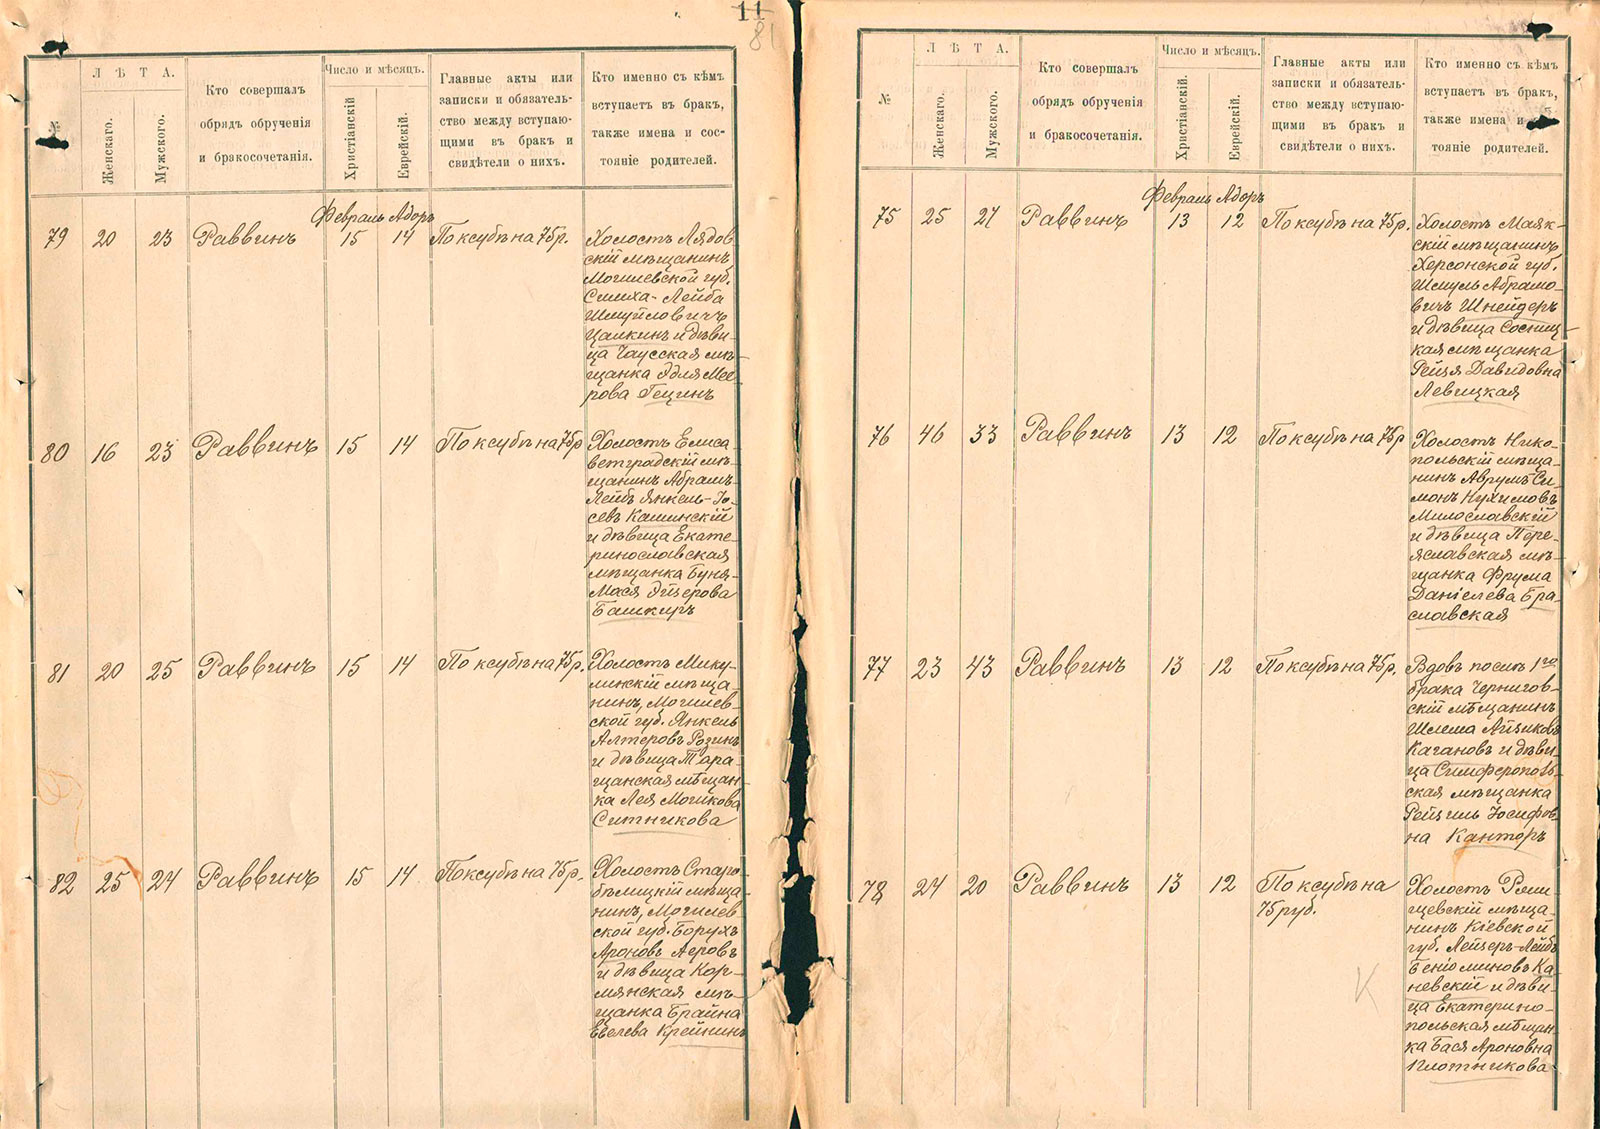 11
81
№
ЛѢТА.
Женскаго.
Мужского.
Кто совершалъ
обрядъ обрученія
и бракосочетанія.
Число и мѣсяцъ.
Христіанскій
Еврейскій.
Главные акты или
записки и обязатель-
ство между вступаю-
щими въ бракъ и
свидѣтели о нихъ.
Кто именно съ кѣмъ
вступаетъ въ бракъ,
также имена и сос-
тояніе родителей.
Февраль Адоръ
79 20 23 Раввинъ 15 14 По ксубѣ на 75 р.
Холостъ Лядов
скій мѣщанинъ
Могилевской губ.
Симха-Лейба
Шмуйловичъ
Цалкинъ и дѣви-
ца Чаусская мѣ-
щанка Эдля Мее-
рова Гецинъ
80 16 23 Раввинъ 15 14 По ксубѣ на 75 р
Холостъ Елиса
ветградскій мѣ-
щанинъ Абрамъ-
Лейбъ Янкель-Іо-
севъ Кашинскій
и дѣвица Екате-
ринославская
мѣщанка Буня-
Мася Эйзерова
Башкиръ
81 20 25 Раввинъ 15 14 По ксубѣ на 75 р.
Холостъ Мику-
линскій мѣща-
нинъ, Могилев-
ской губ. Янкель
Алтеровъ Розинъ
и дѣвица Тара-
щанская мѣщан-
ка Лея Мошкова
Ситникова
82 25 24 Раввинъ 15 14 По ксубѣ на 75 р.
Холостъ Старо-
бѣлицкій мѣща-
нинъ, Могилев-
ской губ. Борухъ
Ароновъ Аеровъ
и дѣвица Кор-
мянская мѣ-
щанка Брайна
Евелева Крейнинъ
№
ЛѢТА.
Женскаго.
Мужского.
Кто совершалъ
обрядъ обрученія
и бракосочетанія.
Число и мѣсяцъ.
Христіанскій.
Еврейскій.
Главные акты или
записки и обязатель-
ство между вступаю-
щими въ бракъ и
свидѣтели о нихъ.
Кто именно съ кѣмъ
вступаетъ въ бракъ,
также имена и
тояніе родителей.
Февраль Адоръ
75 25 27 Раввинъ 13 12 По ксубѣ на 75 р.
Холостъ Маяк-
скій мѣщанинъ
Херсонской губ.
Шмуль Абрамо-
вичъ Шнейдеръ
и дѣвица Сосниц-
кая мѣщанка
Рейзя Давидовна
Левицкая
76 46 33 Раввинъ 13 12 По ксубѣ на 75 р
Холостъ Нико-
польскій мѣща-
нинъ Аврумъ Си-
монъ Нухимовъ
Милославскій
и дѣвица Пере-
яславская мѣ-
щанка Фрума
Даніелева Бра-
славская
77 23 43 Раввинъ 13 12 По ксубѣ на 75 р.
Вдовъ послѣ 1го
брака Чернигов-
скій мѣщанинъ
Шлема Айзиковъ
Кагановъ и дѣви-
ца Симферополь-
ская мѣщанка
Рейзиль Іосифов-
на Канторъ
78 24 20 Раввинъ 13 12 По ксубѣ на
75 руб.
Холостъ Рям-
щевскій мѣща-
нинъ Кіевской
губ. Лейзеръ-Лейбъ
Беніоминовъ Ка-
невскій и дѣви-
ца Екатерино-
польская мѣщан-
ка Бася Ароновна
Плотникова
К